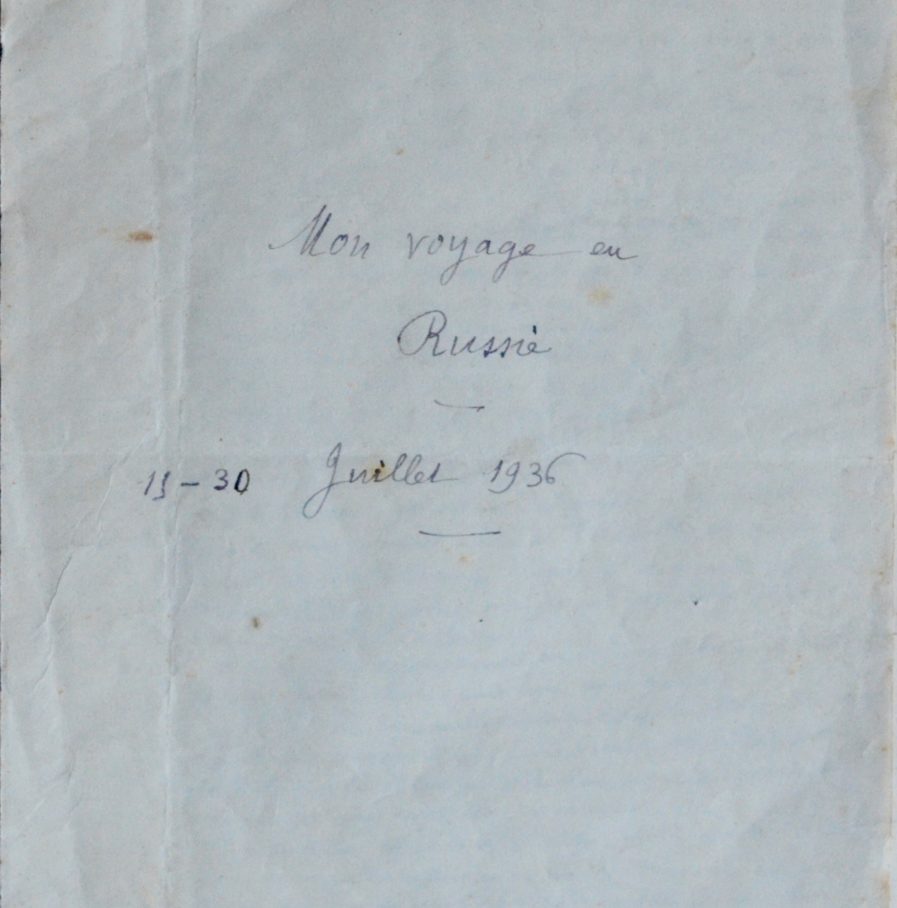 Mon voyage en
Russie
15-30 Juillet 1936